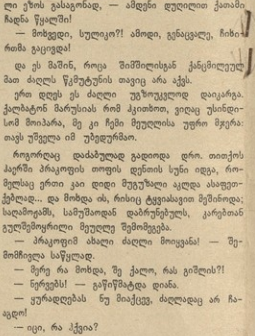 ლი ეზოს გასაგონად, — ამდენი დუღილით ქათამი
ჩადნა წყალში!
— მოხვედი, სულიკო?! ამოდი, გენაცვალე, ჩიხირთმა გაცივდა!
და ეს მაშინ, როცა შიმშილისგან ქანცმილეულ
მათ ძაღლს წკმუტუნის თავიც არ აქვს.
ერთ დღეს ეს ძაღლი უგზოუკვლოდ დაიკარგა.
ქალბატონ მარუსიას რომ ჰკითხოთ, ვიღაც უსინდისომ მოიპარა, მე კი ჩემი მეუღლისა უფრო მჯერა:
თავს უშველა იმ უბედურმაო.
როგორღაც დაძაბულად გადიოდა დრო. თითქოს
ჰაერში პრაკოფის თოფის დენთის სუნი იდგა, რომელსაც ერთი კაი დიდი მუგუზალი აკლდა ასაფეთქებლად... და მოხდა ის, რისიც ტყვიასავით მეშინოდა;
საღამოჟამს, სამუშაოდან დაბრუნებულს, კარებთან
გულშემოყრილი მეუღლე შემომეგება.
— პრაკოფიმ ახალი ძაღლი მოიყვანა! — შემომჩივლა საწყლად.
— მერე რა მოხდა, შე ქალო, რას გიშლის?!
— ნერვებს! — გაწიწმატდა დიანა.
— ყურადღებას ნუ მიაქცევ, ძაღლადაც არ ჩააგდო!
— იცი, რა ჰქვია?